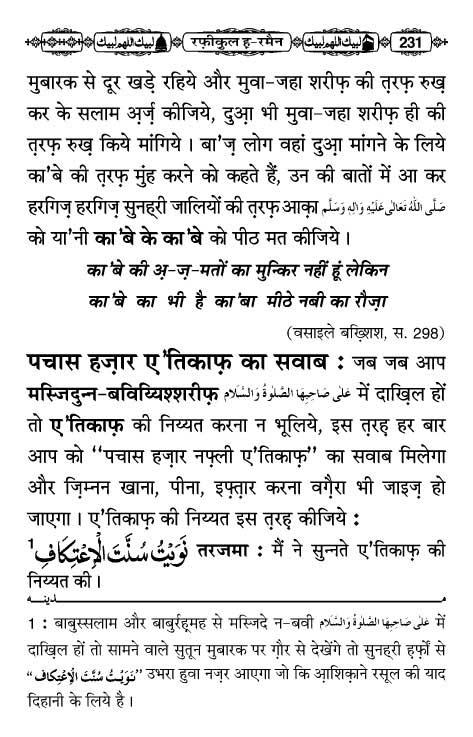 لبيك اللهم لبيك रफ़ीकुल ह-रमैन لبيك اللهم لبيك 231
मुबारक से दूर खड़े रहिये और मुवा-जहा शरीफ़ की त़रफ़ रुख़
कर के सलाम अ़र्ज़ कीजिये, दुआ़ भी मुवा-जहा शरीफ़ ही की
त़रफ़ रुख़ किये मांगिये । बा'ज़ लोग वहां दुआ़ मांगने के लिये
का'बे की त़रफ़ मुंह करने को कहते हैं, उन की बातों में आ कर
हरगिज़ हरगिज़ सुनहरी जालियों की त़रफ़ आक़ा صَلَّى اللهُ تَعَالٰى عَلَيْهِ وَاٰلِهٖ وَسَلَّم
को या'नी का'बे के का'बे को पीठ मत कीजिये ।
का'बे की अ़-ज़-मतों का मुन्किर नहीं हूं लेकिन
का'बे का भी है का'बा मीठे नबी का रौज़ा
(वसाइले बख़्शिश, स. 298)
पचास हज़ार ए'तिकाफ़ का सवाब : जब जब आप
मस्जिदुन्न-बविय्यिश्शरीफ़ عَلٰى صَاحِبِهَا الصَّلٰوةُ وَالسَّلَام में दाख़िल हों
तो ए'तिकाफ़ की निय्यत करना न भूलिये, इस त़रह़ हर बार
आप को "पचास हज़ार नफ़्ली ए'तिकाफ़" का सवाब मिलेगा
और ज़िम्नन खाना, पीना, इफ़्त़ार करना वग़ैरा भी जाइज़ हो
जाएगा । ए'तिकाफ़ की निय्यत इस त़रह़ कीजिये :
نَوَيْتُ سُنَّتَ الْاِعْتِكَاف¹ तरजमा : मैं ने सुन्नते ए'तिकाफ़ की
निय्यत की ।
مدينه
1 : बाबुस्सलाम और बाबुर्रह़मह से मस्जिदे न-बवी عَلٰى صَاحِبِهَا الصَّلٰوةُ وَالسَّلَام में
दाख़िल हों तो सामने वाले सुतून मुबारक पर ग़ौर से देखेंगे तो सुनहरी ह़र्फ़ों से
"نَوَيْتُ سُنَّتَ الْاِعْتِكَاف" उभरा हुवा नज़र आएगा जो कि आ़शिक़ाने रसूल की याद
दिहानी के लिये है ।